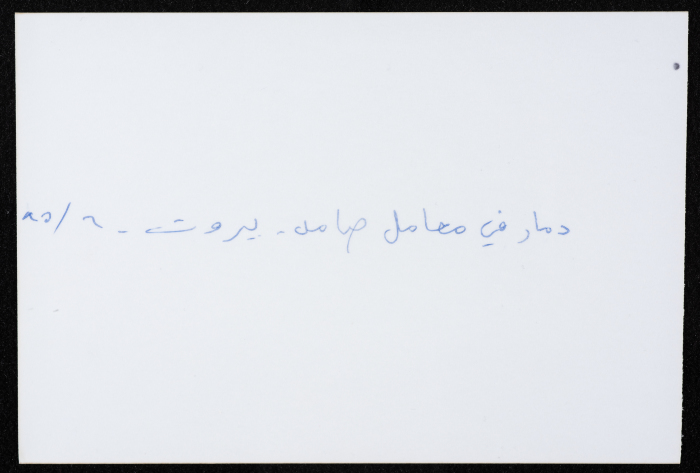 دمار في معامل صامد - بيروت - ٨٥/٦